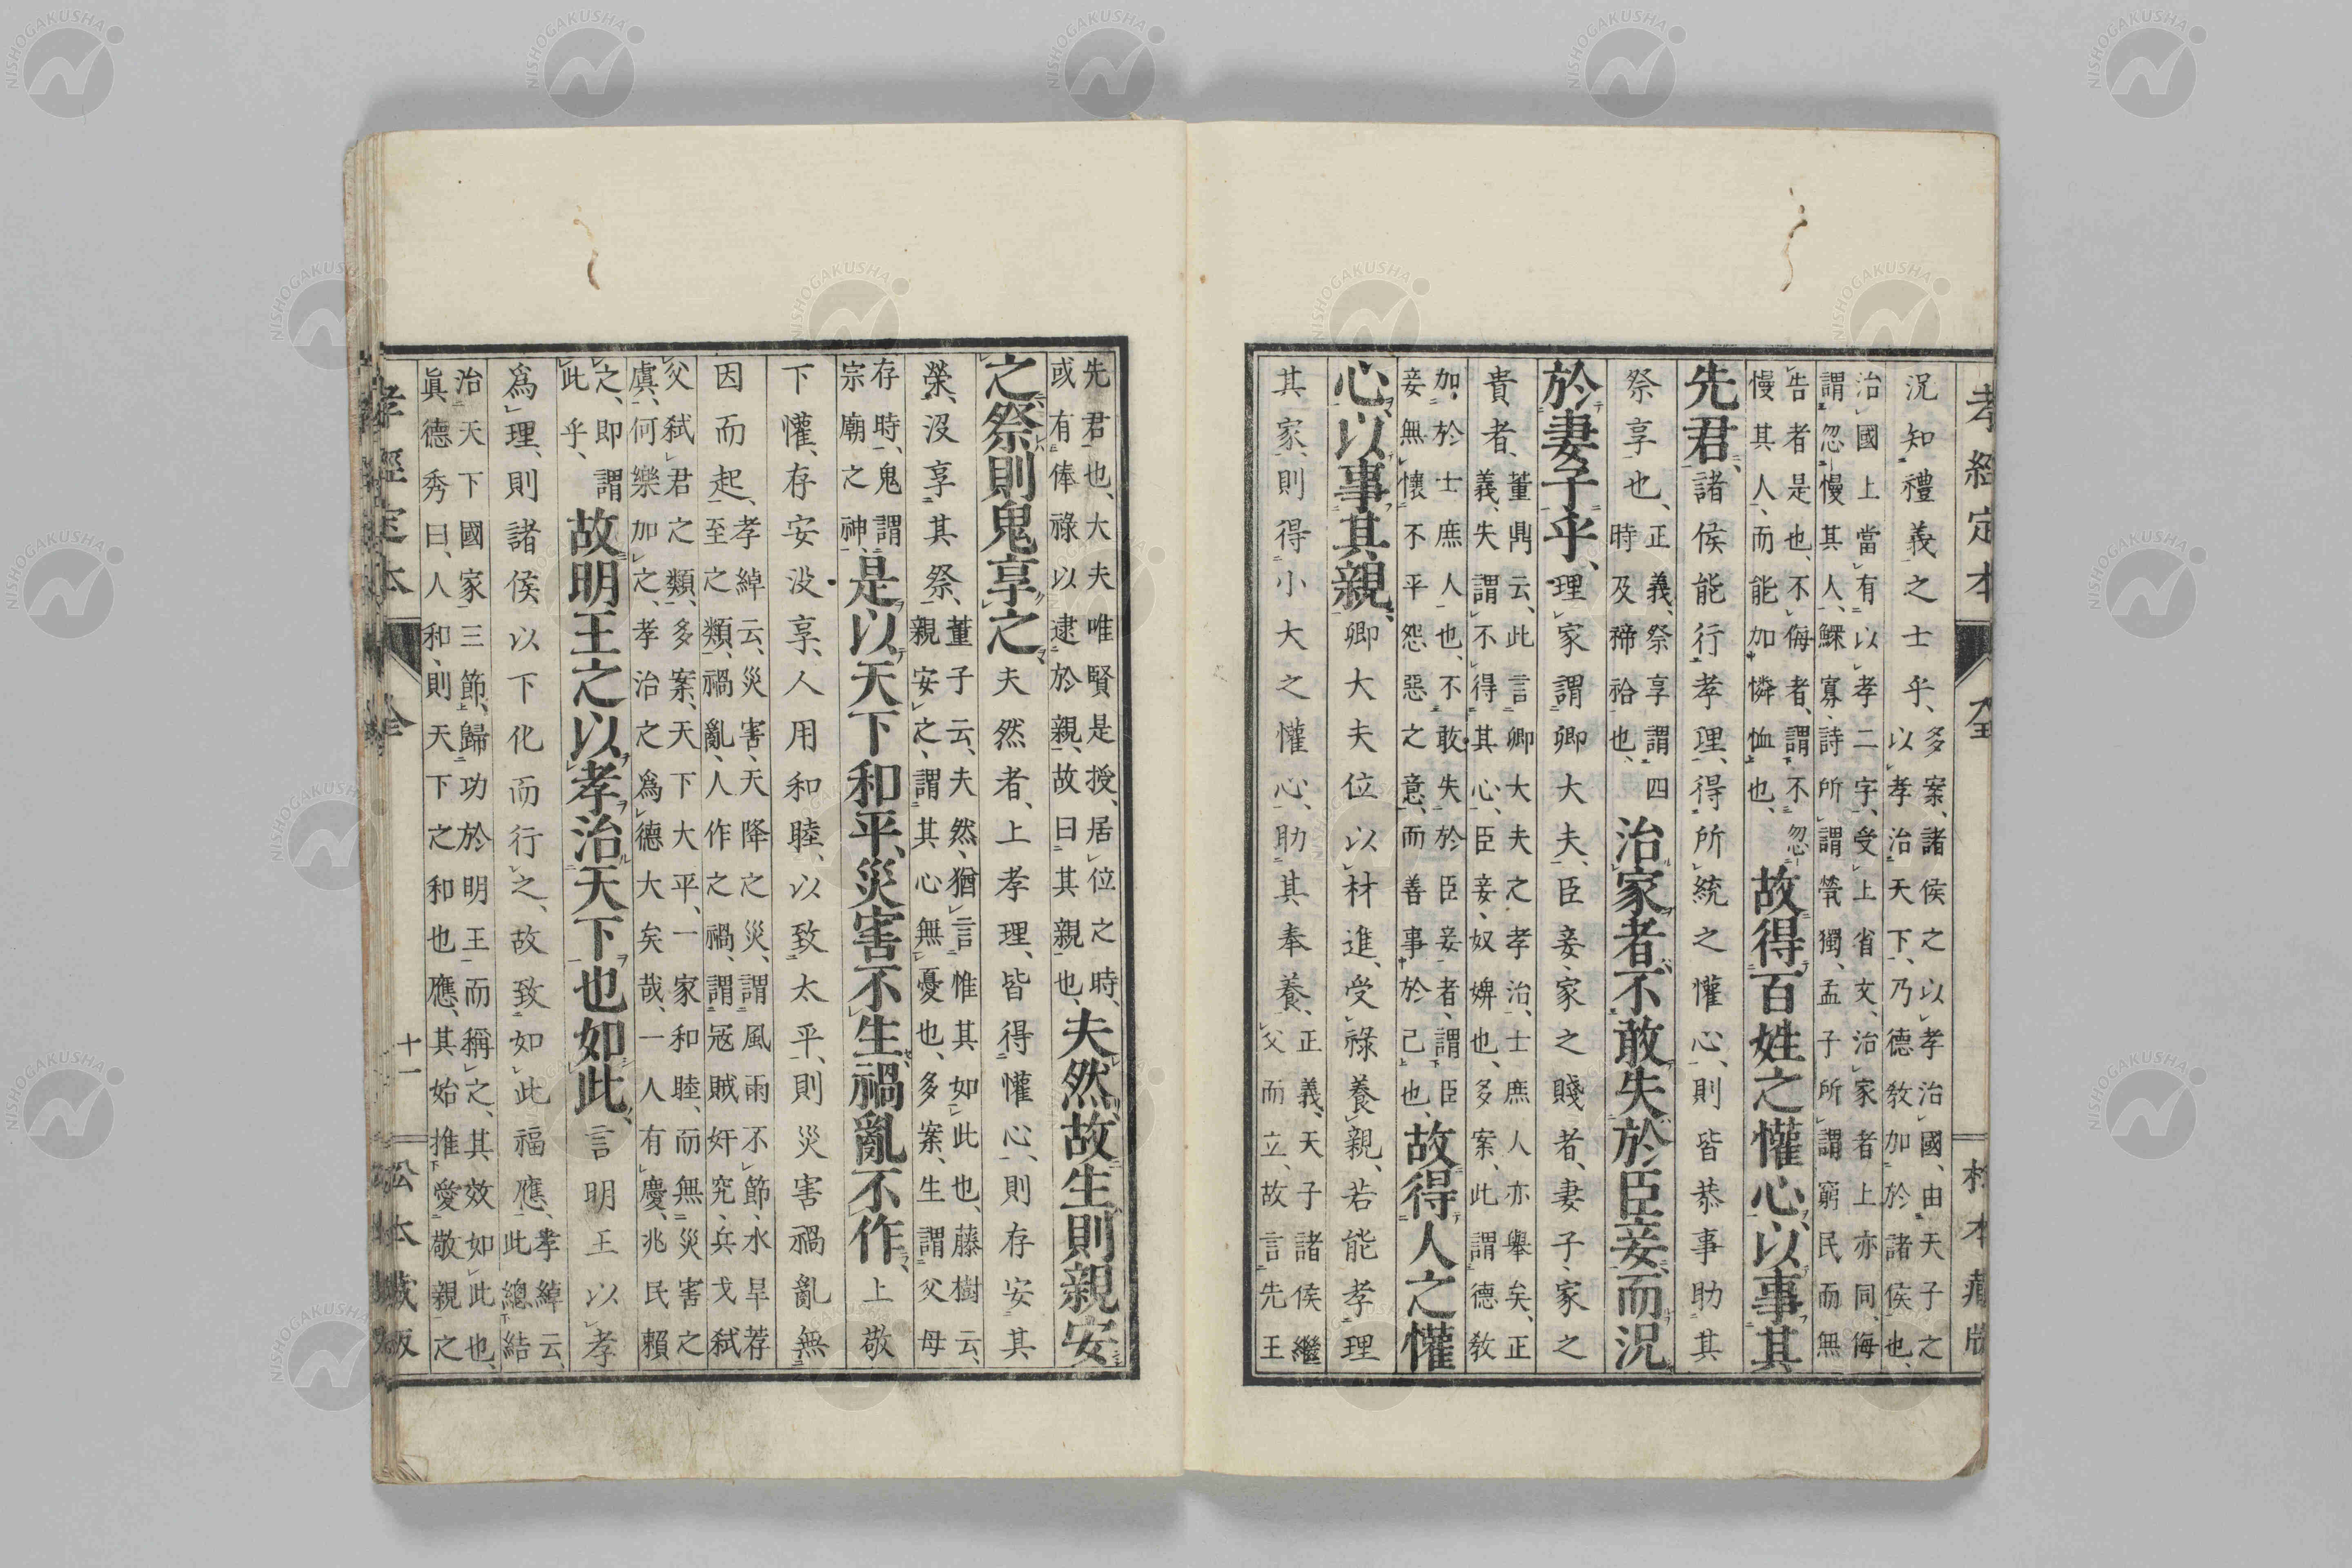 孝經定本 全 松本藏版
況知禮義之士乎、多案、諸侯之以孝治國、由天子之以孝治天下、乃德敎加於諸侯也、
治國上當有以孝二字、受上省文、治家者上亦同、侮謂忽慢其人、鰥寡、詩所謂煢獨、孟子所謂窮民而無
告者是也、不侮者、謂不忽慢其人、而能加憐恤也、故得百姓之懽心、以事其
先君、諸侯能行孝理、得所統之懽心、則皆恭事助其
祭享也、正義、祭享謂四時及禘祫也、治家者、不敢失於臣妾、而況
於妻子乎、理家謂卿大夫、臣妾、家之賤者、妻子、家之
貴者、董鼎云、此言卿大夫之孝治、士庶人亦舉矣、正義、失謂不得其心、臣妾、奴婢也、多案、此謂德敎
加於士庶人也、不敢失於臣妾者、謂臣妾無懷不平怨惡之意、而善事於己也、故得人之懽
心、以事其親、卿大夫位以材進、受祿養親、若能孝理
其家、則得小大之懽心、助其奉養、正義、天子諸侯繼父而立、故言先王
先君也、大夫唯賢是授、居位之時、或有俸祿以逮於親、故曰其親也、夫然、故生則親安
之、祭則鬼享之、夫然者、上孝理、皆得懽心、則存安其
榮、沒享其祭、董子云、夫然、猶言惟其如此也、藤樹云、親安之、謂其心無憂也、多案、生謂父母
存時、鬼謂宗廟之神、是以天下和平、災害不生、禍亂不作、上敬
下懽、存安沒享、人用和睦、以致太平、則災害禍亂無
因而起、孝綽云、災害、天降之災、謂風雨不節、水旱荐至之類、禍亂、人作之禍、謂冦賊奸究、兵戈弑
父弑君之類、多案、天下大平、一家和睦、而無災害之虞、何樂加之、孝治之爲德大矣哉、一人有慶、兆民賴
之、卽謂此乎、故明王之以孝治天下也如此、言明王以孝
爲理、則諸侯以下化而行之、故致如此福應、孝綽云、此總結
治天下國家三節、歸功於明王而稱之、其效如此也、眞德秀曰、人和、則天下之和也應、其始推愛敬親之
孝經定本 全 十一 松本藏版